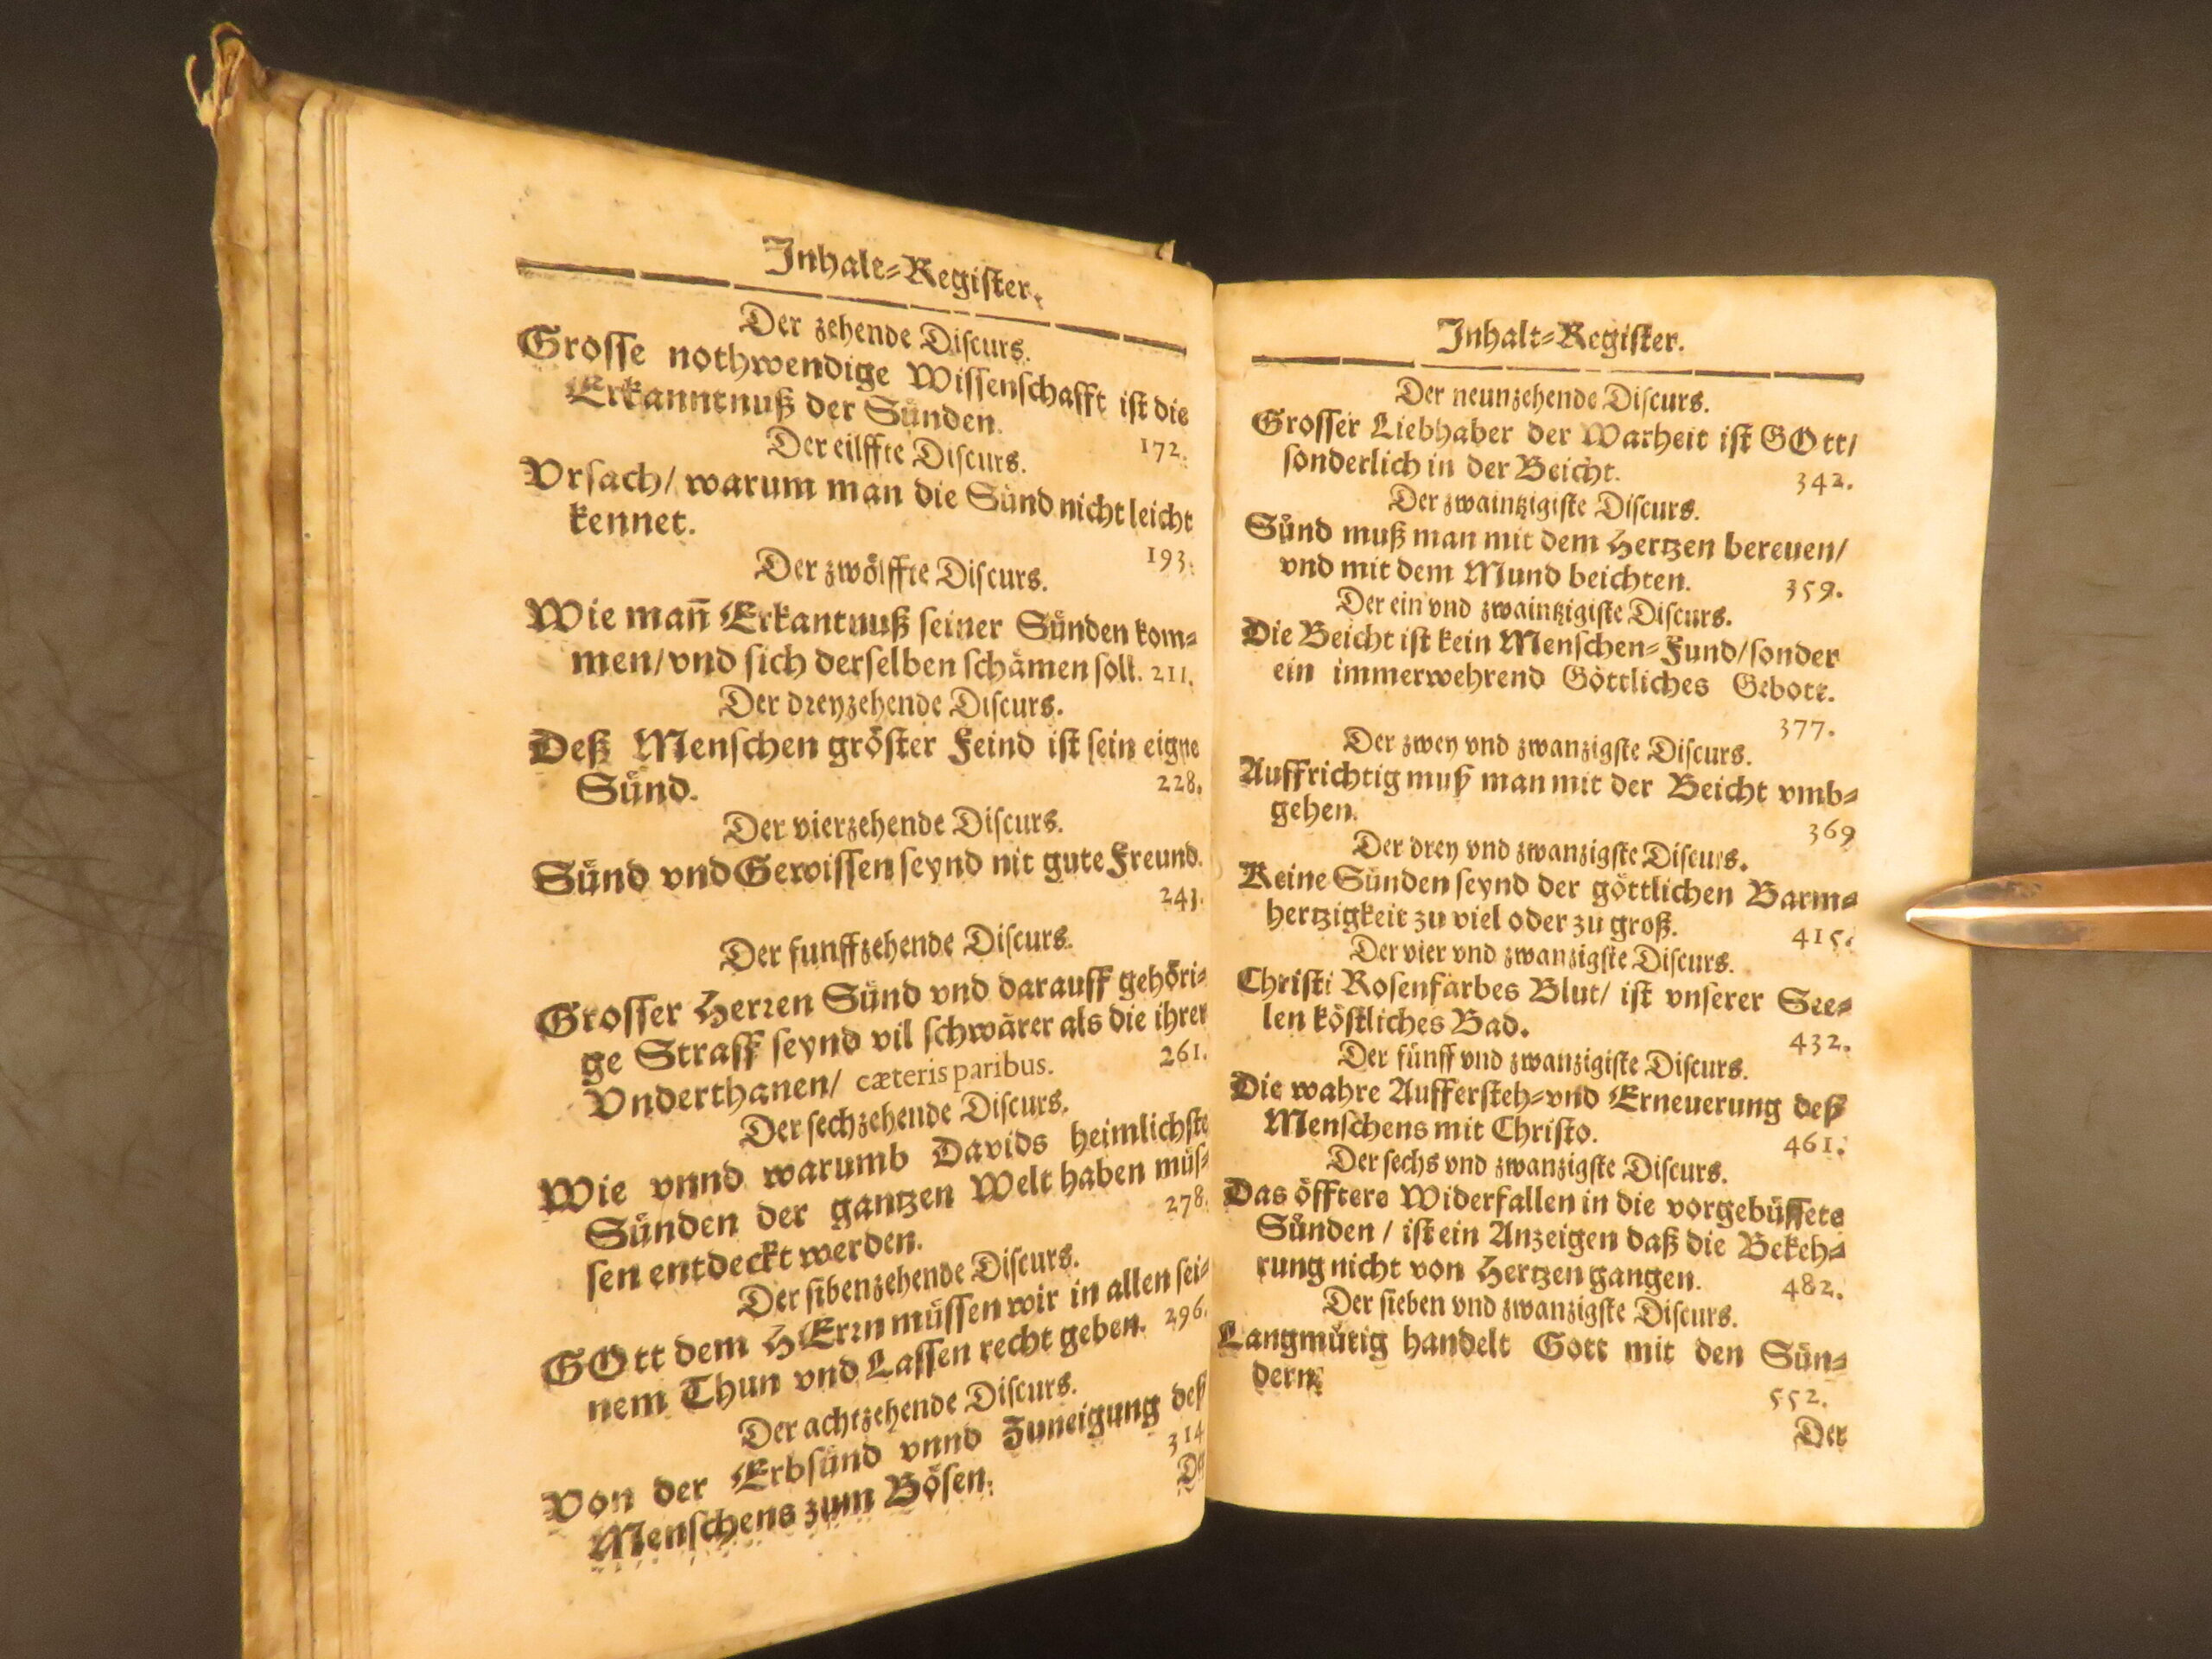 Inhalt=Register.
Der zehende Discurs.
Grosse nothwendige Wissenschafft ist die
Erkanntnuß der Sünden. 172.
Der eilffte Discurs.
Vrsach/ warum man die Sünd nicht leicht
kennet. 193.
Der zwölffte Discurs.
Wie mañ Erkantnuß seiner Sünden kom=
men/vnd sich derselben schämen soll. 211.
Der dreyzehende Discurs.
Deß Menschen gröster Feind ist sein eigne
Sünd. 228.
Der vierzehende Discurs.
Sünd vnd Gewissen seynd nit gute Freund.
243.
Der funffzehende Discurs.
Grosser Herren Sünd vnd darauff gehöri=
ge Straff seynd vil schwärer als die ihrer
Vnderthanen/ cæteris paribus. 261.
Der sechzehende Discurs.
Wie vnnd warumb Davids heimlichste
Sünden der gantzen Welt haben müs=
sen entdeckt werden. 278.
Der sibenzehende Discurs.
GOtt dem HErrn müssen wir in allen sei=
nem Thun vnd Lassen recht geben. 296.
Der achtzehende Discurs.
Von der Erbsünd vnnd Zuneigung deß
Menschens zum Bösen. 314
Der
Inhalt=Register.
Der neunzehende Discurs.
Grosser Liebhaber der Warheit ist GOtt/
sonderlich in der Beicht. 342.
Der zwaintzigiste Discurs.
Sünd muß man mit dem Hertzen bereuen/
vnd mit dem Mund beichten. 359.
Der ein vnd zwaintzigiste Discurs.
Die Beicht ist kein Menschen=Fund/sonder
ein immerwehrend Göttliches Gebott.
377.
Der zwey vnd zwanzigste Discurs.
Auffrichtig muß man mit der Beicht vmb=
gehen. 369
Der drey vnd zwanzigste Discurs.
Keine Sünden seynd der göttlichen Barm=
hertzigkeit zu viel oder zu groß. 415.
Der vier vnd zwanzigste Discurs.
Christi Rosenfarbes Blut/ ist vnserer See=
len köstliches Bad. 432.
Der fünff vnd zwanzigiste Discurs.
Die wahre Aufferste​h=vnd Erneuerung deß
Menschens mit Christo. 461.
Der sechs vnd zwanzigste Discurs.
Das öfftere Widerfallen in die vorgebüssete
Sünden / ist ein Anzeigen daß die Bekeh=
rung nicht von Hertzen gangen. 482.
Der sieben vnd zwanzigste Discurs.
Langmütig handelt Gott mit den Sün=
dern. 552.
Der